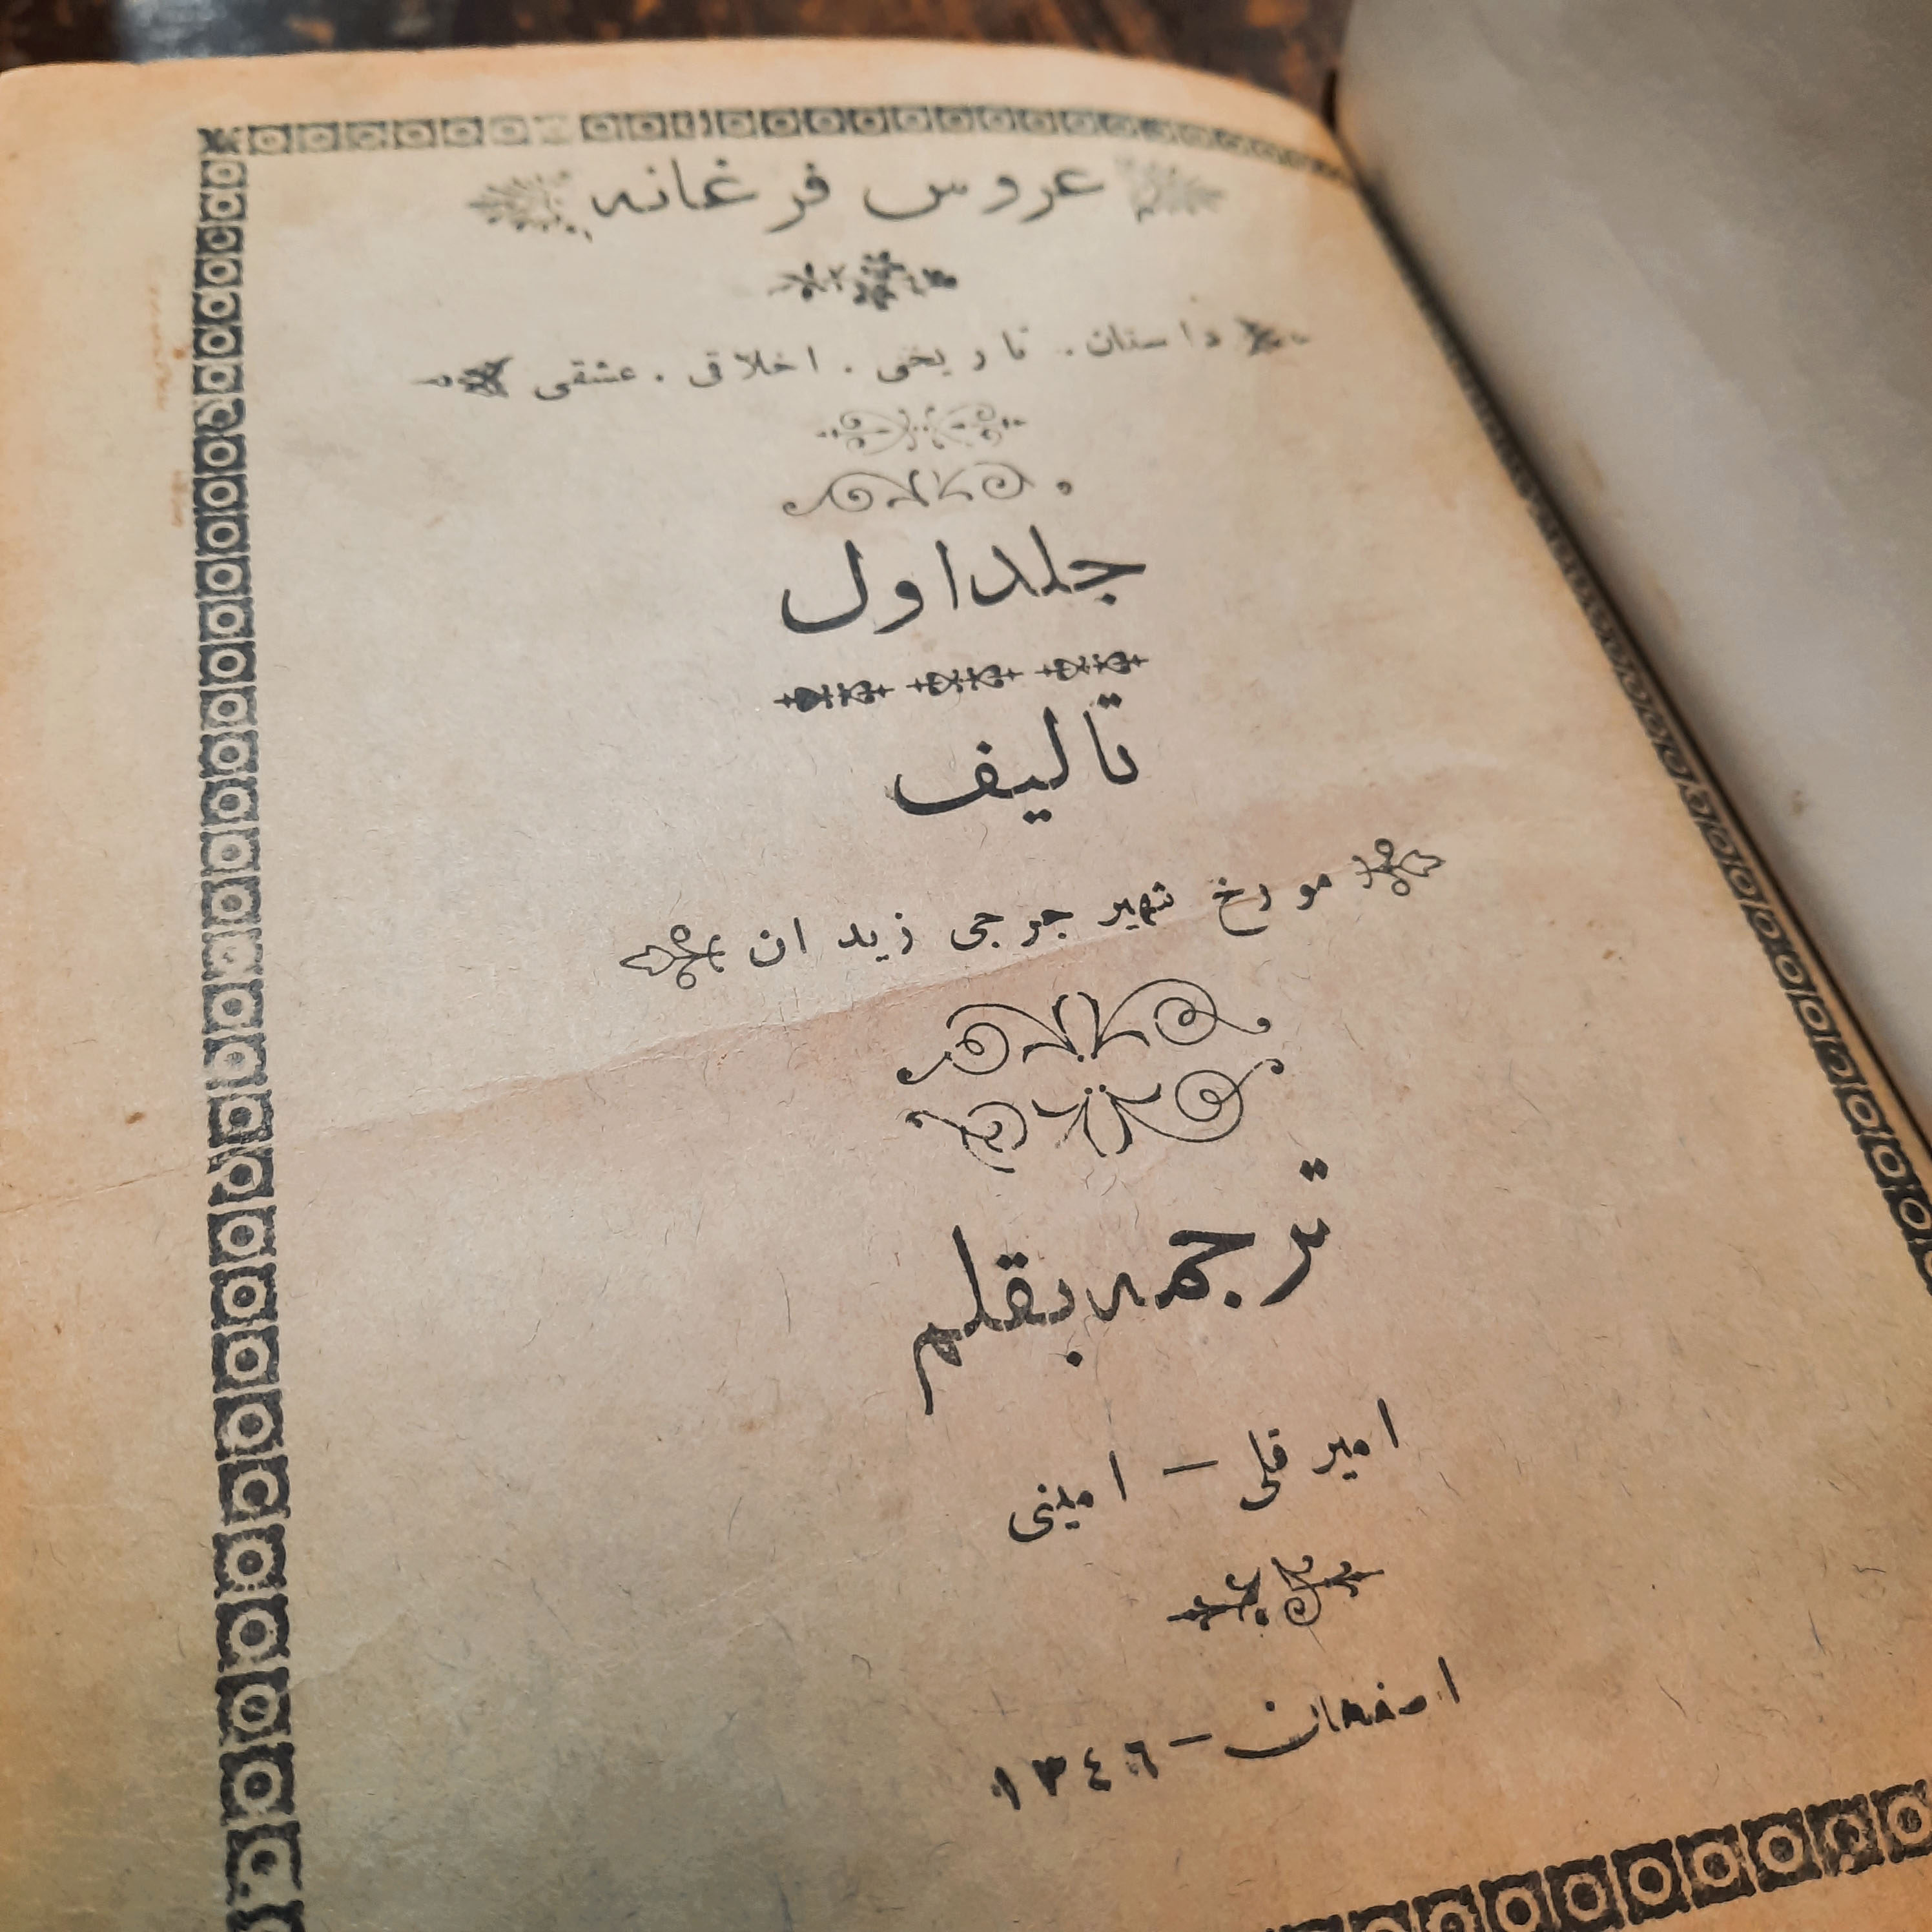 عروس فرغانه
داستان. تاریخی. اخلاقی. عشقی
جلد اول
تالیف
مورخ شهیر جرجی زیدان
ترجمه بقلم
امیر قلی — امینی
اصفهان — ١٣٤٦